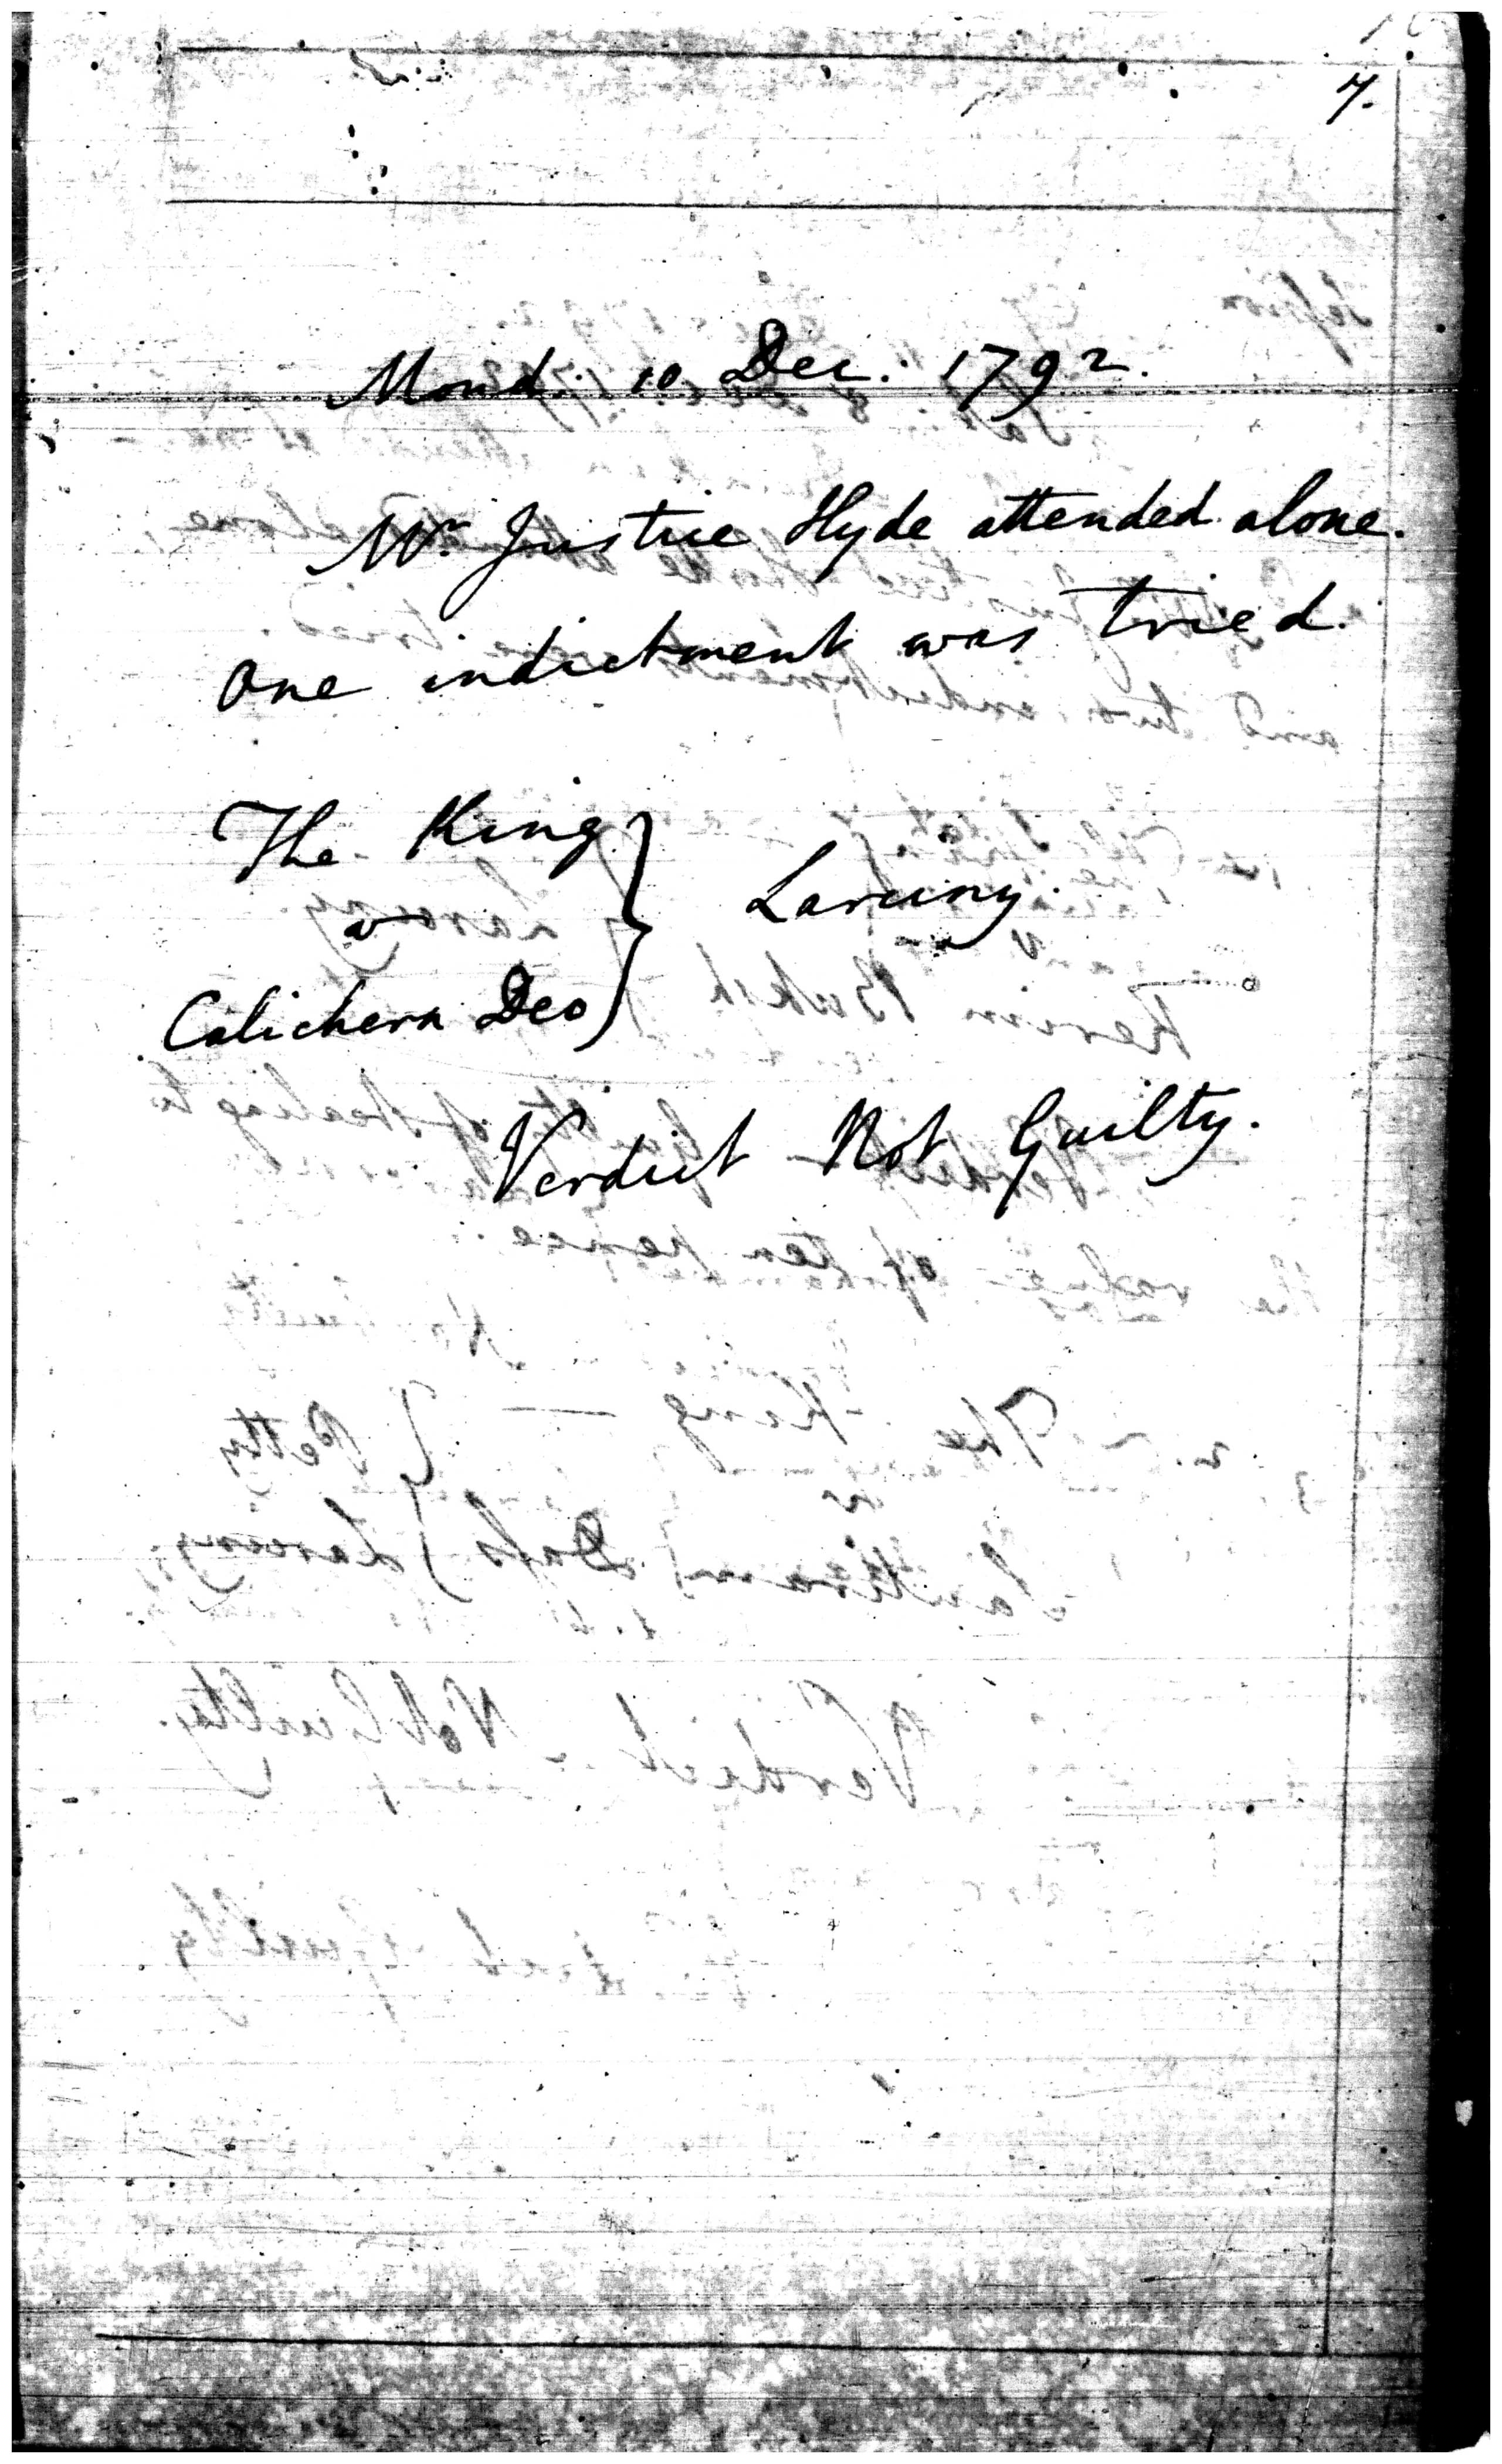 7.
Mond. 10 Dec. 1792.
Mr. Justice Hyde attended alone.
One indictment was tried.
The King
v
Calichern Deo } Larceny.
Verdict Not Guilty.